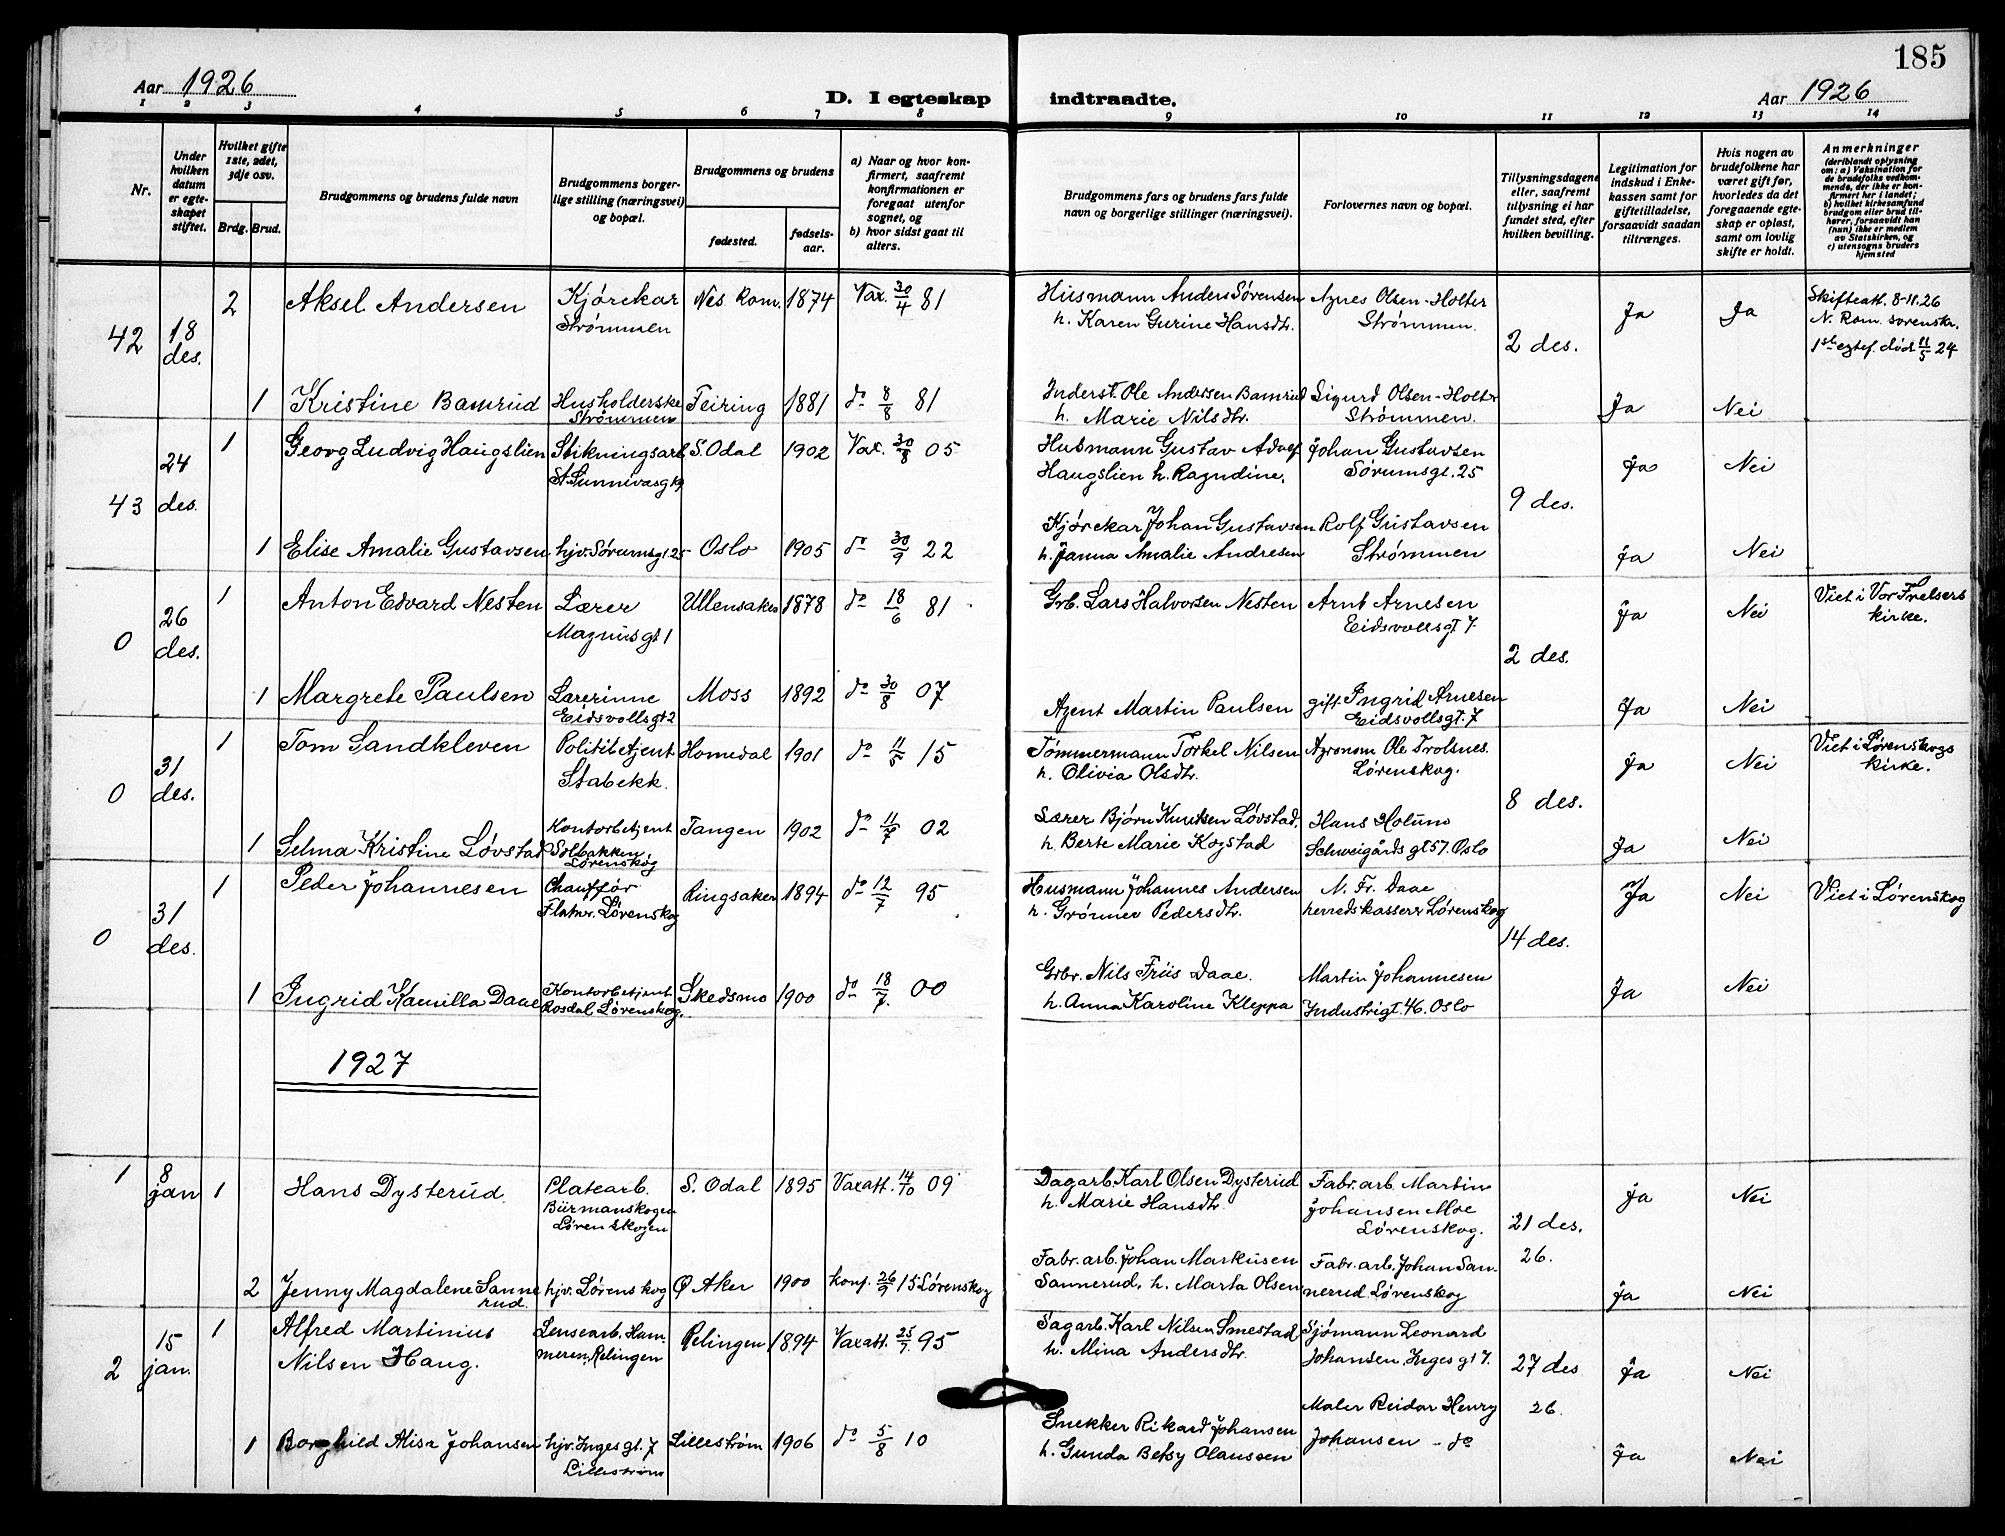 185
Aar 1926
D. I egteskap indtraadte.
Aar 1926
1 2 3 4 5 6 7 8 9 10 11 12 13 14
Nr.
Under hvilken datum er egteskapet stiftet.
Hvilket gifte 1ste, 2det, 3dje osv.
Brdg. Brud.
Brudgommens og brudens fulde navn
Brudgommens borgerlige stilling (næringsvei) og bopæl.
Brudgommens og brudens
fødested.
fødselsaar.
a) Naar og hvor konfirmert, saafremt konfirmationen er foregaat utenfor sognet, og
b) hvor sidst gaat til alters.
Brudgommens fars og brudens fars fulde navn og borgerlige stillinger (næringsvei).
Forlovernes navn og bopæl.
Tillysningsdagene eller, saafremt tillysning ei har fundet sted, efter hvilken bevilling.
Legitimation for indskud i Enkekassen samt for giftetilladelse, forsaavidt saadan tiltrænges.
Hvis nogen av brudefolkene har været gift før, hvorledes da det foregaaende egteskap er opløst, samt om lovlig skifte er holdt.
Anmerkninger (deriblandt oplysning om: a) Vaksination for de brudefolks vedkommende, der ikke er konfirmert her i landet; b) hvilket kirkesamfund brudgom eller brud tilhører, forsaavidt han (hun) ikke er medlem av Statskirken, og c) utensogns bruders hjemsted
42 18 des. 2 Aksel Andersen Kjørekar Strømmen Nes Rom. 1874 Vax. 30/4 81 Husmann Anders Sørensen h. Karen Gurine Hansdtr. Agnes Olsen-Holter Strømmen. 2 des. Ja Ja Skifteatt. 8-11.26 N. Rom. sorenskr. 1ste egtef. død 11/5 24
1 Kristine Bamrud Husholderske Strømmen Feiring 1881 do 8/8 81 Inderst. Ole Andersen Bamrud h. Marie Nilsdtr. Sigurd Olsen-Holter Strømmen. Ja Nei
43 24 des. 1 Georg Ludvig Haugslien Stikningsarb. St.Sunnivasgt 9 S. Odal 1902 Vax. 30/8 05 Husmann Gustav Adolf Haugslien h. Ragndine. Johan Gustavsen Sørumsgt. 25 9 des. Ja Nei
1 Elise Amalie Gustavsen hjv. Sørumsgt 25 Oslo 1905 do 30/9 22 Kjørekar Johan Gustavsen h. Janna Amalie Andresen Rolf Gustavsen Strømmen Ja Nei
0 26 des. 1 Anton Edvard Nesten Lærer Magnusgt 1 Ullensaker 1878 do 18/6 81 Grb. Lars Halvorsen Nesten Arnt Arnesen Eidsvollsgt 7. 2 des. Ja Nei Viet i Vor Frelsers kirke.
1 Margrete Paulsen Lærerinne Eidsvollsgt 2 Moss 1892 do 30/8 07 Agent Martin Paulsen gift. Ingrid Arnesen Eidsvollsgt. 7 Ja Nei
0 31 des. 1 Tom Sandkleven Politibetjent Stabekk. Homedal 1901 do 11/5 15 Tømmermann Torkel Nilsen h. Olivia Olsdtr. Agronom Ole Trolsnes. Lørenskog. 8 des. Ja Nei Viet i Lørenskogs kirke.
1 Selma Kristine Løvstad Kontorbetjent Solbakken, Lørenskog Tangen 1902 do 11/7 02 Lærer Bjørn Knutsen Løvstad, h. Berte Marie Kogstad Hans Holum Schweigårds gt 57. Oslo Ja Nei
0 31 des. 1 Peder Johannesen Chauffør Flatner. Lørenskog Ringsaker 1894 do 12/7 95 Husmann Johannes Andersen h. Grønner Pedersdtr. N. Fr. Daae herredskasserer Lørenskog 14 des. Ja Nei Viet i Lørenskog
1 Ingrid Kamilla Daae Kontorbetjent Rosdal, Lørenskog. Skedsmo 1900 do 18/7. 00 Grbr. Nils Friis Daae. h. Anna Karoline Kleppa Martin Johannesen Industrigt. 46. Oslo Ja Nei
1927
1 8 jan 1 Hans Dysterud. Platearb. Bürmanskogen Lørenskogen S. Odal 1895 Vaxatt. 14/10 09 Dagarb. Karl Olsen Dysterud h. Marie Hansdtr. Fabr. arb. Martin Johansen Moe Lørenskog. 21 des. 26. Ja Nei
2 Jenny Magdalene Sannerud. hjv. Lørenskog Ø Aker 1900 konf. 26/9 15 Lørenskog Fabr. arb. Johan Markusen Sannerud, h. Marta Olsen Fabr. arb. Johan Sannerud. Lørenskog Ja Nei
2 15 jan. 1 Alfred Martinius Nilsen Haug. Lensearb. Hammeren, Relingen Relingen 1894 Vaxatt. 25/7 95 Sagarb. Karl Nilsen Smestad h. Mina Andersdtr. Sjømann Leonard Johansen, Inges gt 7. 27 des 26. Ja Nei
1 Borghild Alise Johansen hjv. Inges gt. 7 Lillestrøm Lillestrøm 1906 do 5/8 10 Snekker Rikard Johansen h. Gunda Betsy Olaussen Maler Reidar Henry Johansen - do Ja Nei